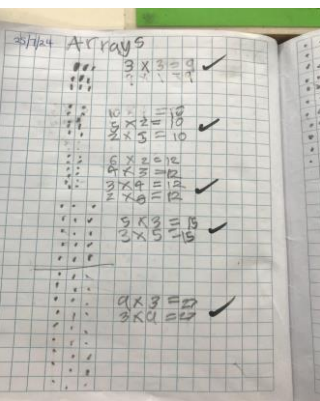 25/7/24 Arrays
3 x 3 = 9
= 9
10 = 10
5 x 2 = 10
2 x 5 = 10
6 x 2 = 12
4 x 3 = 12
3 x 4 = 12
2 x 6 = 12
5 x 3 = 15
3 x 5 = 15
9 x 3 = 27
3 x 9 = 27